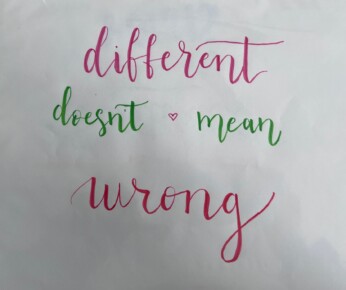 different
doesnt ♡ mean
wrong